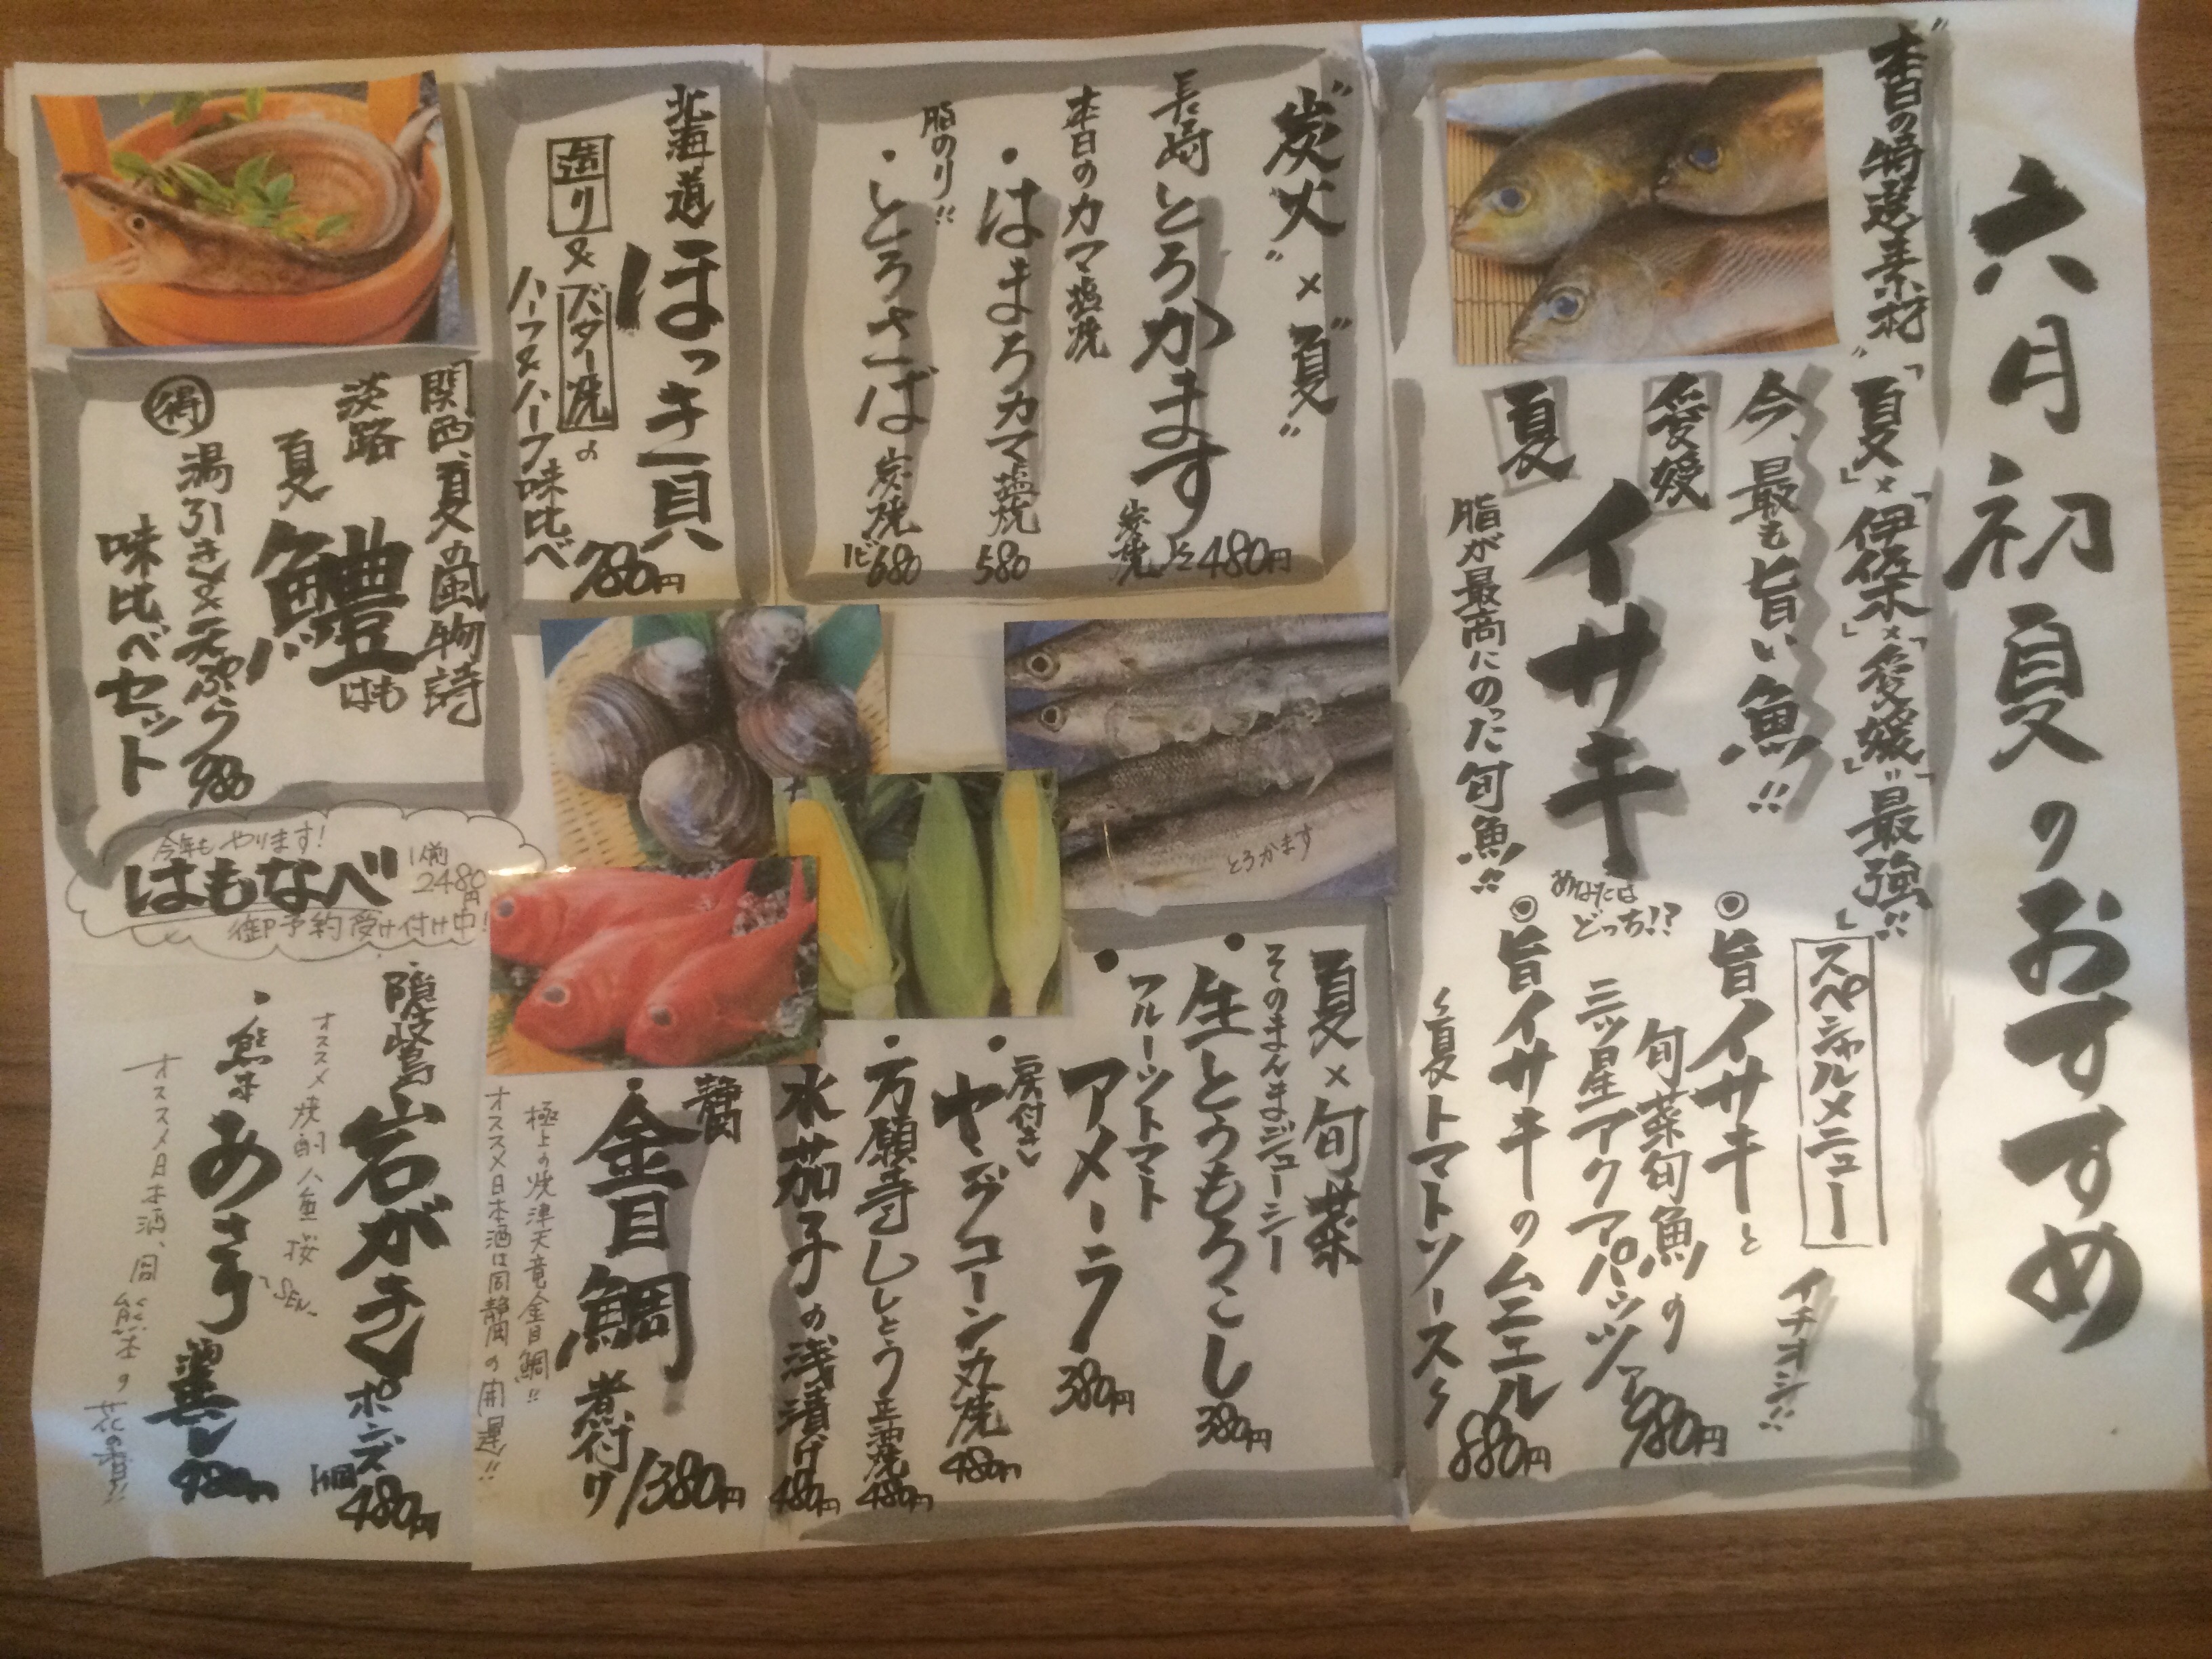 六月初夏のおすすめ
"本日の特選素材"
「夏」×「伊佐木」×「愛媛」=「最強」!!
今、最も旨い魚!!
愛媛
夏
イサキ
脂が最高にのった旬魚!!
スペシャルメニュー
イチオシ!!
◎旨イサキと
旬菜旬魚の
三ッ星アクアパッツァ 980円
あなたは
どっち!?
◎旨イサキのムニエル
〜夏トマトソース〜 880円
"炭火"×"夏"
長崎とろかます
炭焼 480円
本日のカマ塩焼
・はまちカマ塩焼 580
脂のり!!
・とろさば炭焼 680
とろかます
夏×旬菜
そのまんまジューシー
・生とうもろこし 380円
フルーツトマト
・アメーラ 380円
房付き
・ヤングコーン丸焼 480円
・万願寺ししとう正油焼 480円
水茄子の浅漬け 480円
北海道
ほっき貝
造り&バター焼の
ハーフ&ハーフ味比べ
780円
静岡
・金目鯛
煮付け 1380円
極上の焼津天竜金目鯛!!
オススメ日本酒は同静岡の開運!!
関西、夏の風物詩
淡路
夏
鱧
はも
得
湯引き&天ぷら
味比べセット
980
今年もやります!
はもなべ
1人前
2480円
御予約受け付け中!
・隠岐島
岩がき
ポンズ
1個 480円
オススメ焼酎 人魚 桜
・熊本
あさり
酒蒸し
オススメ日本酒、同熊本の花の香!!